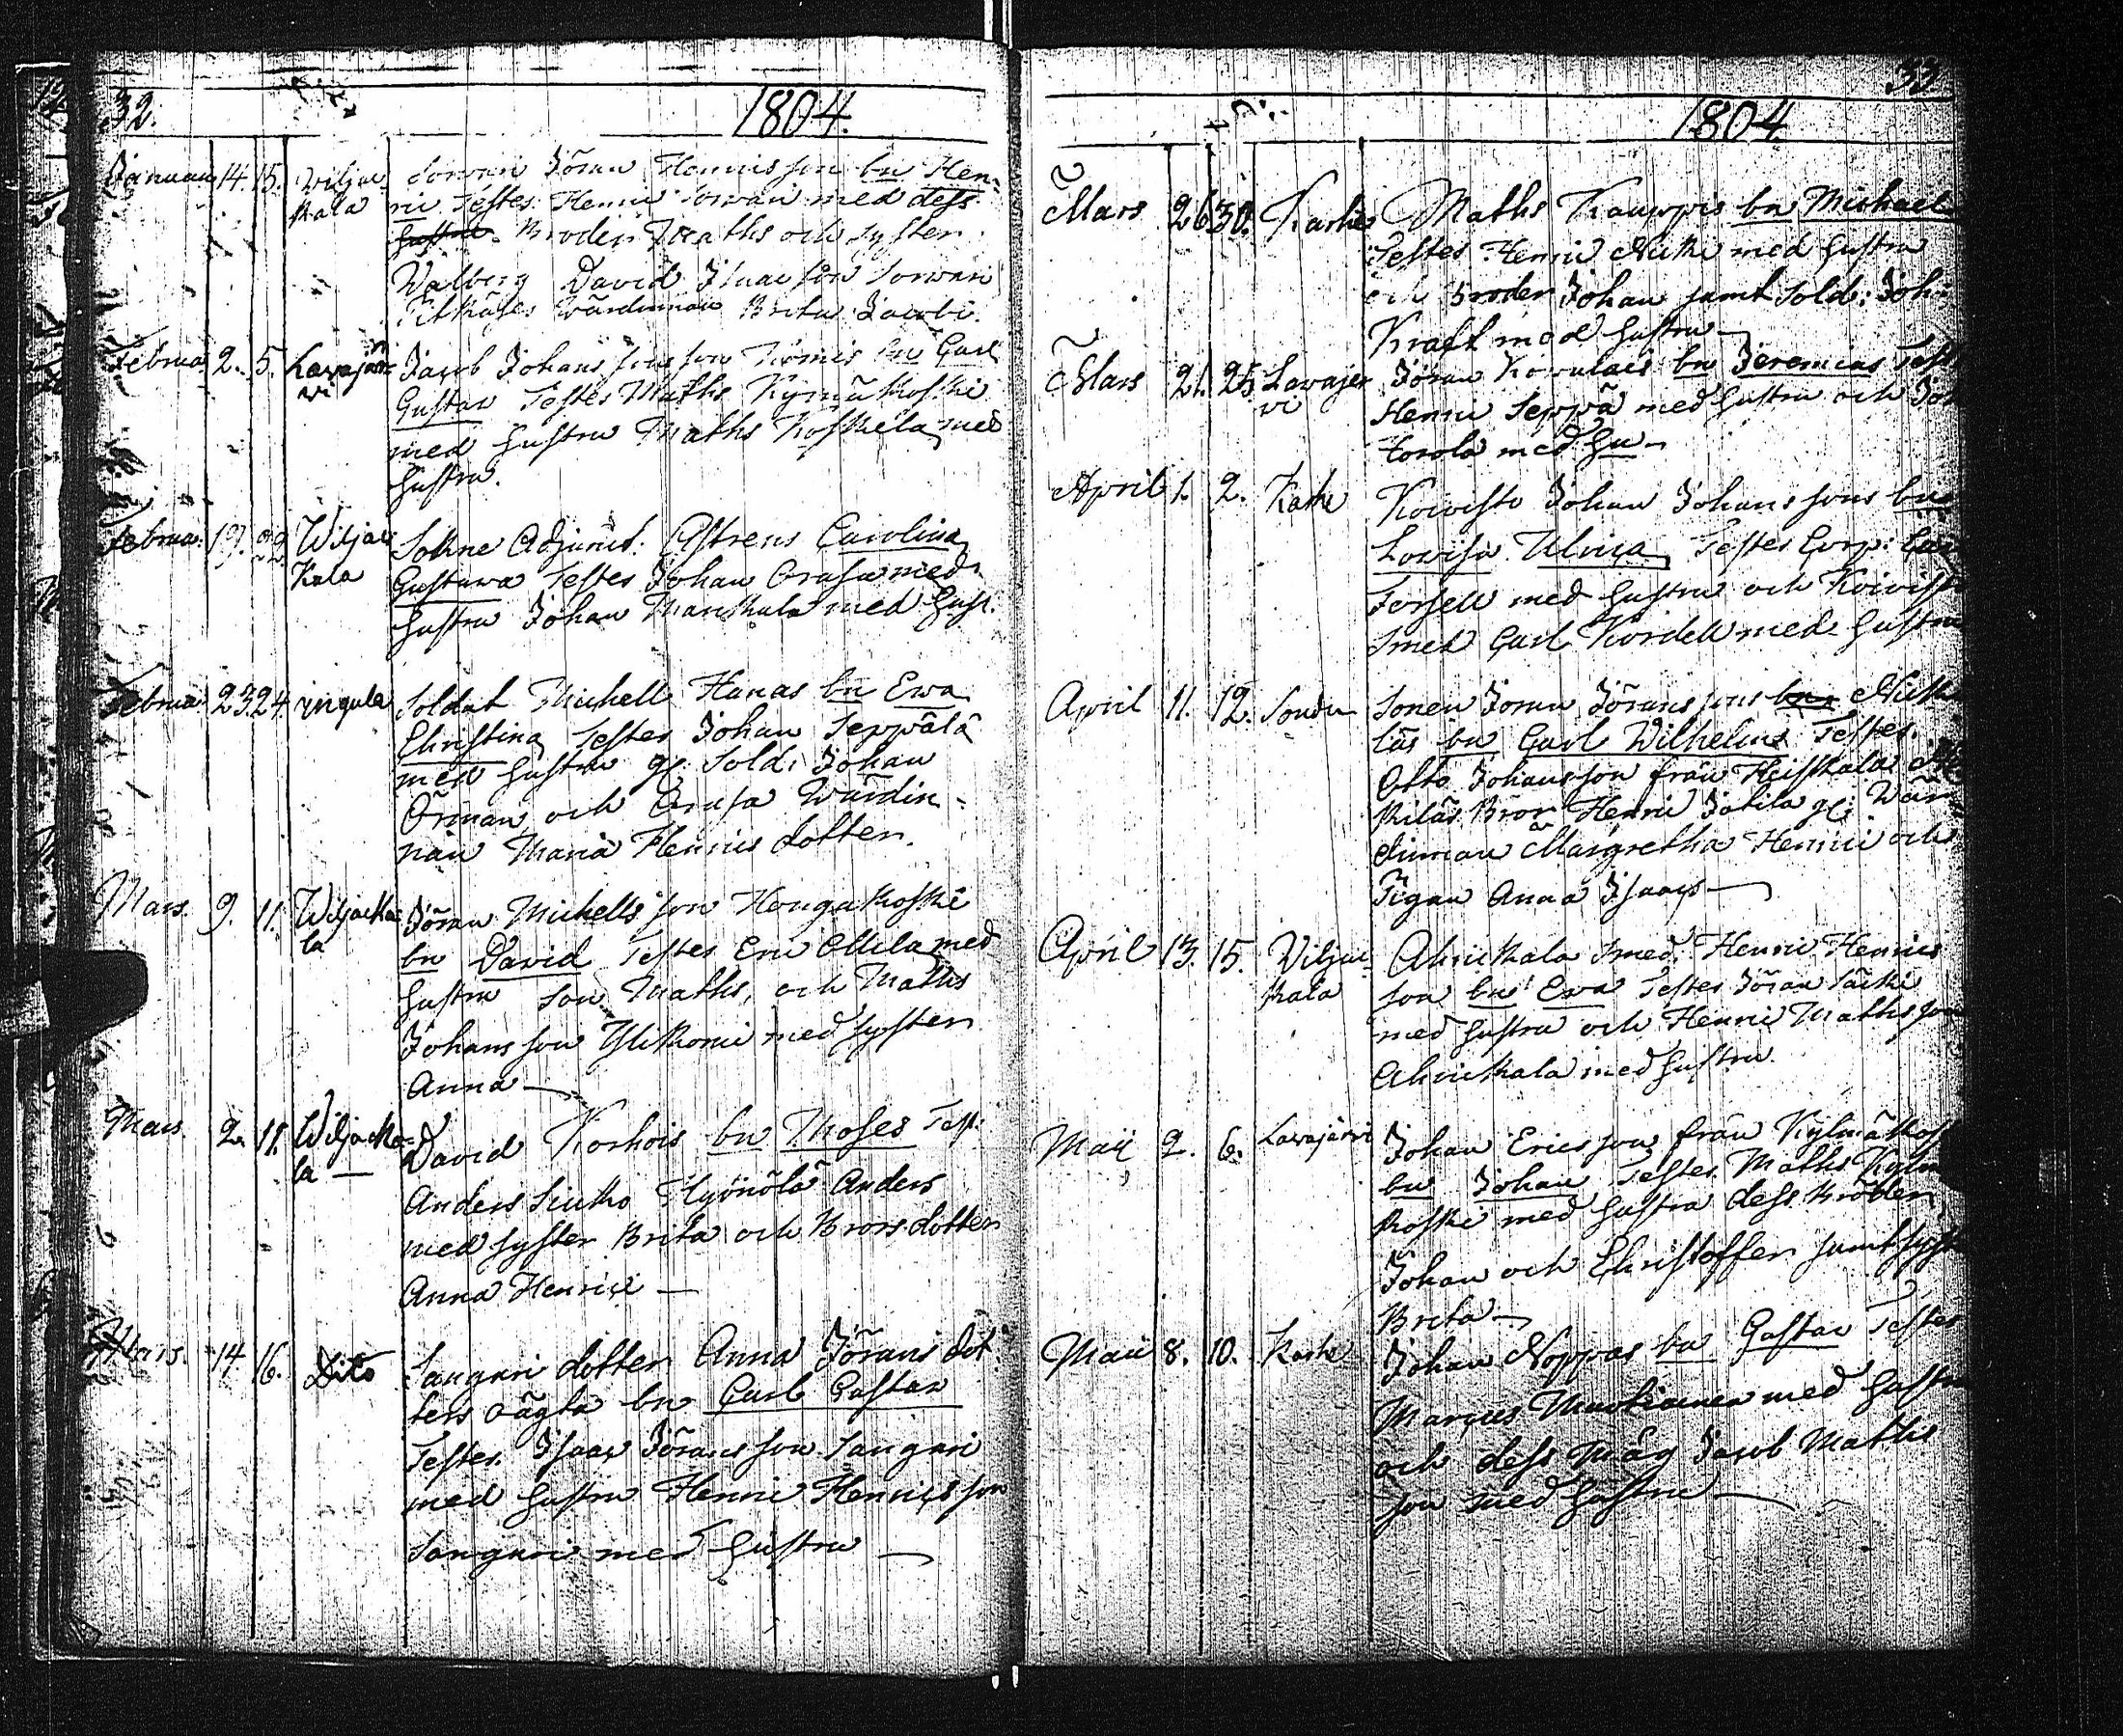 32.
1804.
Januari 14. 15. Wiljac- Sorvari Jöran Henricsson bn Hen-
kala ric Testes Henric Sorvari med dess
hustru. Broder Maths och syster
Walborg David Isaacson Sorvari
Pitkäjes Wärdinnan Brita Jacobi.
Februa 2. 5. Lavajär- Jacob Johansson bn Carl
vi Gustav Testes Maths Kylmäkoski
med hustru Maths Koskela med
hustru.
Februa. 19. 22 Wiljac- Sokne Adjunct. Astrens Carolina
kala Gustava Testes Johan Orasa med
hustru Johan Manskala med hust.
Februa. 23. 24. yngula Soldat Michell Hanas bn Ewa
Christina Testes Johan Seppälä
med hustru gl. Sold. Johan
Örman och Orasa Wärdin-
nan Maria Henricsdotter.
Mars. 9. 11. Wiljacka- Jöran Michellsson Hongakoski
la bn David Testes Eric Ollila med
hustru son Maths, och Maths
Johansson Ylikonni med syster
Anna
Mars 2. 11. Wiljacka- David Korhois bn Moses Test.
la Anders Siukko Hyönölä Anders
med syster Brita och Brorsdotter
Anna Henrici
Mars. 14 16. Dito Sangari dotter Anna Jörans dot-
ters oägta bn Carl Gustav
Testes. Isaac Jöransson Sangari
med hustru Henric Henricsson
Sangari med hustru
33
1804
Mars 26 30. Karhe Maths Kauppis bn Michael
Testes Henric med hustru
och broder Johan samt Sold: Joh:
Kraft med hustru
Mars 21. 25. Lavajer Jöran bn Jeremias Test
vi Henric Seppä med hustru och Joh
Torola med hu
April 1. 2. Karhe Koivisto Johan Johanssons bn
Lovisa Ulrica Testes Corp: Carl
Forsell med hustru och Koivisto
Smed Carl Nordell med hustru
April 11. 12. Sondu Sonen Jöran Jöranssons bn
läs bn Carl Wilhelm Testes.
Otto Johansson från Heiskala
kiläs Bror Henric Jokila gl: Wär
dinnan Margretha Henrici och
Pigan Anna Isaacs
April 13. 15. Viljac- Ahrikkala Smed. Henric Henrics
kala son bn Ewa Testes Jöran Särki
med hustru och Henric Mathsson
Ahrikkala med hustru
Maii 2. 6. Lavajärvi Johan Ericsson från Kylmäkos
bn Johan Testes Maths Kylm
koski med hustru dess bröder
Johan och Christoffer samt syst
Brita
Maii 8. 10. Karhe Johan Noppas bn Gustav Testes
Marcus med hustru
och dess Måg Jacob Maths
son med hustru